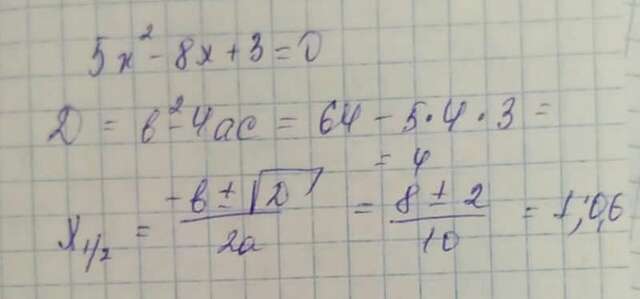 5x² - 8x + 3 = 0
D = b² - 4ac = 64 - 5·4·3 =
= 4
x₁/₂ = (-b ± √D)/2a = (8 ± 2)/10 = 1; 0,6